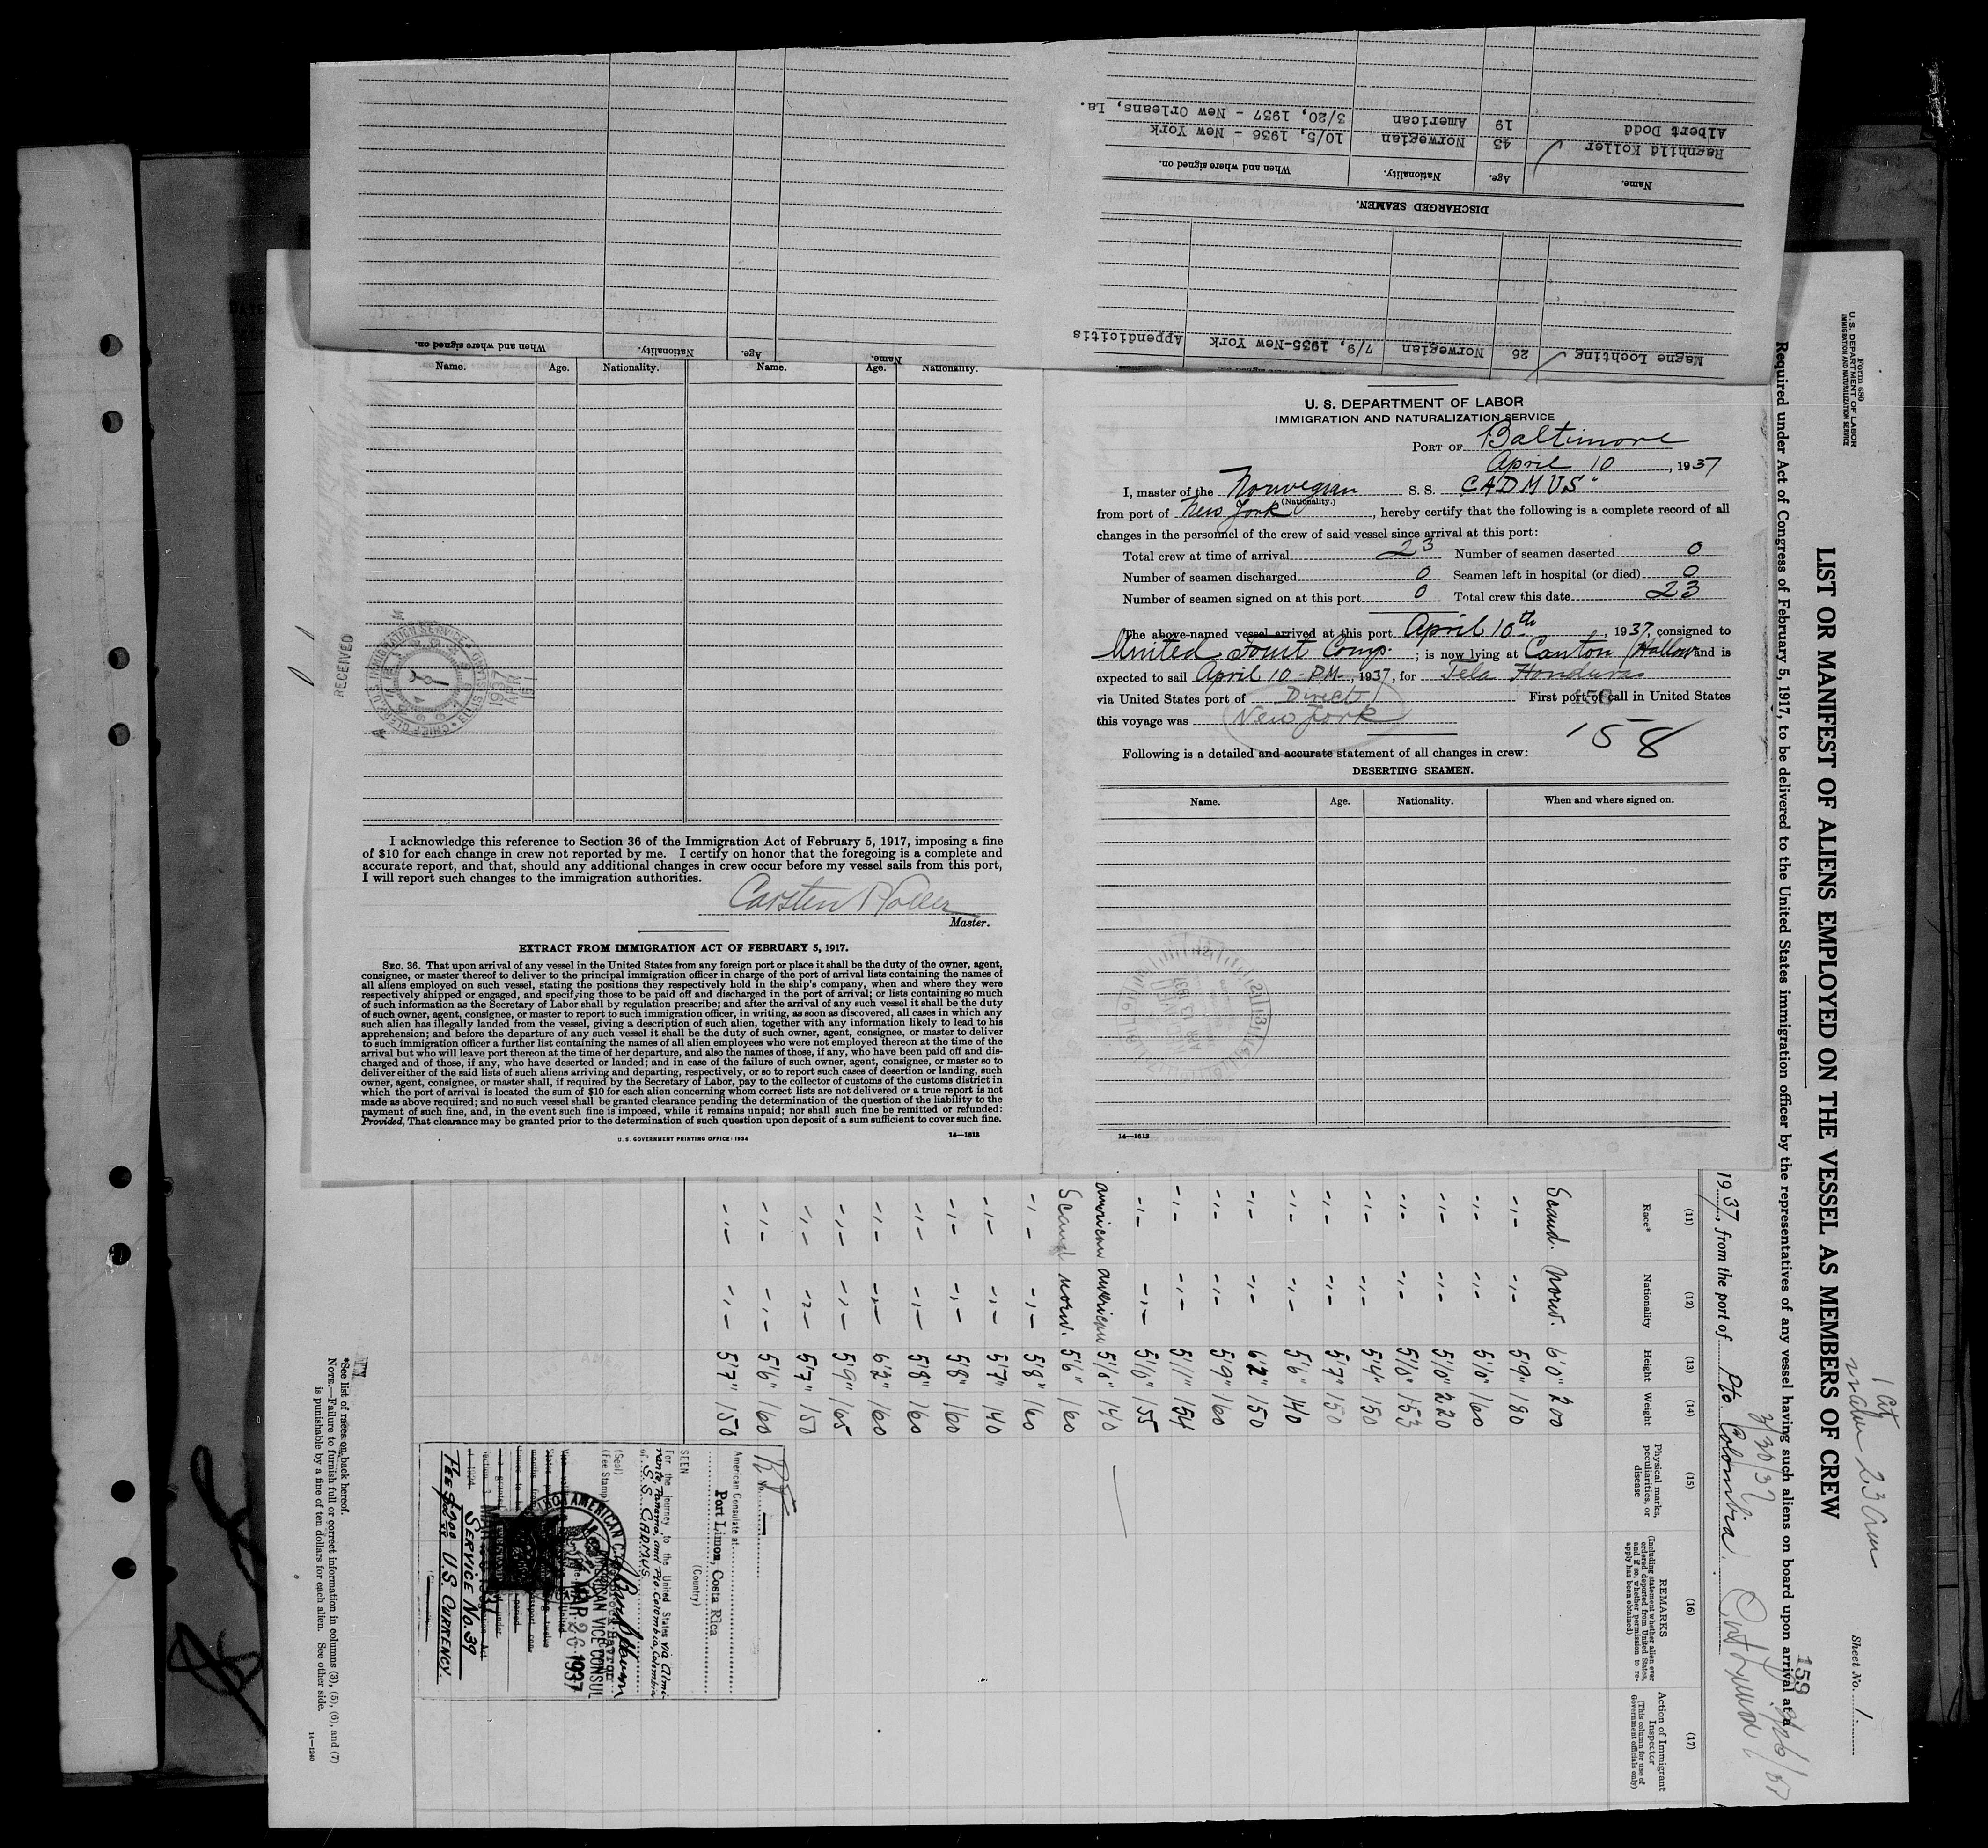 Albert Dodd 19 American 3/20, 1937 - New Orleans, La.
Ragnhild Koller 43 Norwegian 10/5, 1936 - New York
Name. Age. Nationality. When and where signed on.
DISCHARGED SEAMEN.
Magne Lochting 26 Norwegian 7/9, 1935-New York Appendicitis
Name. Age. Nationality. When and where signed on.
Name. Age. Nationality. Name. Age. Nationality.
RECEIVED
1937 APR
I acknowledge this reference to Section 36 of the Immigration Act of February 5, 1917, imposing a fine
of $10 for each change in crew not reported by me. I certify on honor that the foregoing is a complete and
accurate report, and that, should any additional changes in crew occur before my vessel sails from this port,
I will report such changes to the immigration authorities.
Carsten Koller
Master.
EXTRACT FROM IMMIGRATION ACT OF FEBRUARY 5, 1917.
SEC. 36. That upon arrival of any vessel in the United States from any foreign port or place it shall be the duty of the owner, agent,
consignee, or master thereof to deliver to the principal immigration officer in charge of the port of arrival lists containing the names of
all aliens employed on such vessel, stating the positions they respectively hold in the ship's company, when and where they were
respectively shipped or engaged, and specifying those to be paid off and discharged in the port of arrival; or lists containing so much
of such information as the Secretary of Labor shall by regulation prescribe; and after the arrival of any such vessel it shall be the duty
of such owner, agent, consignee, or master to report to such immigration officer, in writing, as soon as discovered, all cases in which any
such alien has illegally landed from the vessel, giving a description of such alien, together with any information likely to lead to his
apprehension; and before the departure of any such vessel it shall be the duty of such owner, agent, consignee, or master to deliver
to such immigration officer a further list containing the names of all alien employees who were not employed thereon at the time of the
arrival but who will leave port thereon at the time of her departure, and also the names of those, if any, who have been paid off and dis-
charged and of those, if any, who have deserted or landed; and in case of the failure of such owner, agent, consignee, or master so to
deliver either of the said lists of such aliens arriving and departing, respectively, or so to report such cases of desertion or landing, such
owner, agent, consignee, or master shall, if required by the Secretary of Labor, pay to the collector of customs of the customs district in
which the port of arrival is located the sum of $10 for each alien concerning whom correct lists are not delivered or a true report is not
made as above required; and no such vessel shall be granted clearance pending the determination of the question of the liability to the
payment of such fine, and, in the event such fine is imposed, while it remains unpaid; nor shall such fine be remitted or refunded:
Provided, That clearance may be granted prior to the determination of such question upon deposit of a sum sufficient to cover such fine.
U.S. GOVERNMENT PRINTING OFFICE: 1934 14—1613
U. S. DEPARTMENT OF LABOR
IMMIGRATION AND NATURALIZATION SERVICE
PORT OF Baltimore
April 10, 1937
I, master of the Norwegian S. S. "CADMUS"
(Nationality.)
from port of New York, hereby certify that the following is a complete record of all
changes in the personnel of the crew of said vessel since arrival at this port:
Total crew at time of arrival 23 Number of seamen deserted 0
Number of seamen discharged 0 Seamen left in hospital (or died) 0
Number of seamen signed on at this port 0 Total crew this date 23
The above-named vessel arrived at this port April 10th, 1937, consigned to
United Fruit Comp.; is now lying at Canton Hallow and is
expected to sail April 10 - P.M., 1937, for Tela Honduras
via United States port of Direct First port of call in United States
this voyage was New York
158
Following is a detailed and accurate statement of all changes in crew:
DESERTING SEAMEN.
Name. Age. Nationality. When and where signed on.
14—1613
Form 680
U. S. DEPARTMENT OF LABOR
IMMIGRATION AND NATURALIZATION SERVICE
Sheet No. 1
LIST OR MANIFEST OF ALIENS EMPLOYED ON THE VESSEL AS MEMBERS OF CREW
159
Required under Act of Congress of February 5, 1917, to be delivered to the United States immigration officer by the representatives of any vessel having such aliens on board upon arrival at a
3/30 37
1937, from the port of Pto Colombia
(11) (12) (13) (14) (15) (16) (17)
Race* Nationality Height Weight Physical marks, peculiarities, or disease REMARKS Action of Immigrant Inspector
(Including statement whether alien ever ordered deported from United States, and if so, whether permission to reapply has been obtained)
(This column for use of Government officials only)
Scand. Norw. 6'0" 200
-"- -"- 5'9" 180
-"- -"- 5'10" 160
-"- -"- 5'10" 220
-"- -"- 5'8" 153
-"- -"- 5'4" 150
-"- -"- 5'7" 150
-"- -"- 5'6" 140
-"- -"- 6'2" 150
-"- -"- 5'9" 160
-"- -"- 5'11" 154
-"- -"- 5'6" 155
american american 5'6" 140
Scand norw. 5'6" 160
-"- -"- 5'8" 160
-"- -"- 5'7" 140
-"- -"- 5'8" 160
-"- -"- 5'8" 160
-"- -"- 6'2" 160
-"- -"- 5'9" 165
-"- -"- 5'7" 150
-"- -"- 5'6" 160
-"- -"- 5'7" 150
No.
American Consulate at
Port Limon, Costa Rica
(Country)
SEEN
For the journey to the United States via Almirante, Panama, and Pto. Colombia, Colombia
S.S. CADMUS
(Seal)
(Fee Stamp)
AMERICAN VICE CONSUL
MAR 26 1937
SERVICE No. 39
FEE $2.00 U.S. CURRENCY
*See list of races on back hereof.
NOTE.—Failure to furnish full or correct information in columns (3), (5), (6), and (7)
is punishable by a fine of ten dollars for each alien. See other side.
14—1240